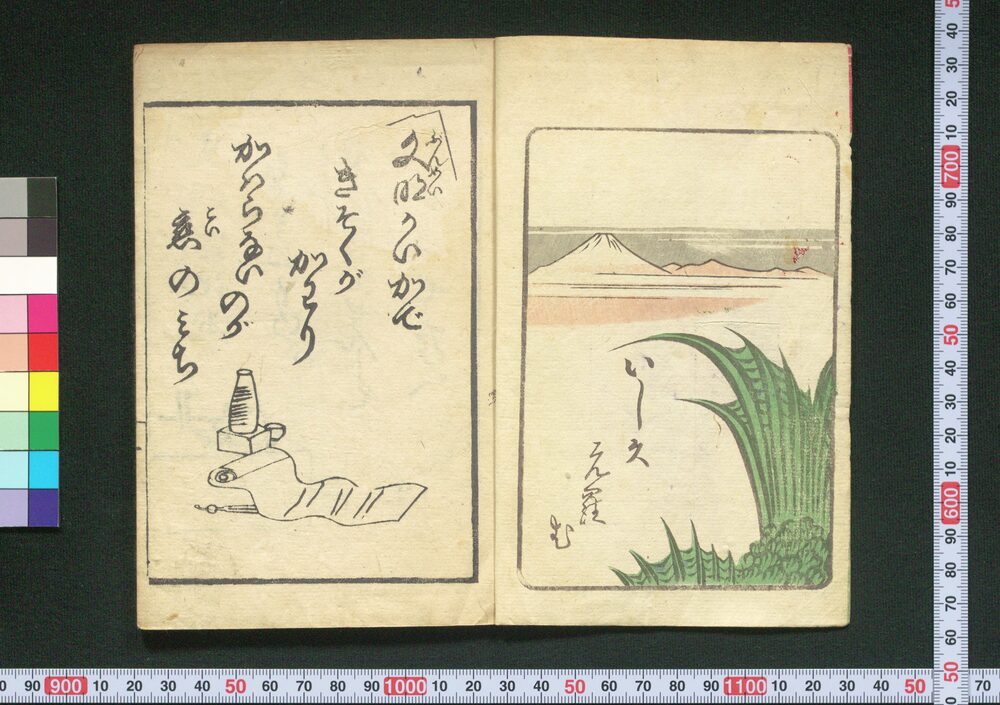 ぶんめい
文明かいかで
きそくが
かわり
かハらないのが
こい
恋のみち
0 90 900 10 20 30 40 50 60 70 80 90 1000 10 20 30 40 50 60 70 80 90 1100 10 20 30 40 50 70
50 40 30 20 10 700 90 80 70 60 50 40 30 20 10 600 90 80 70 60 50